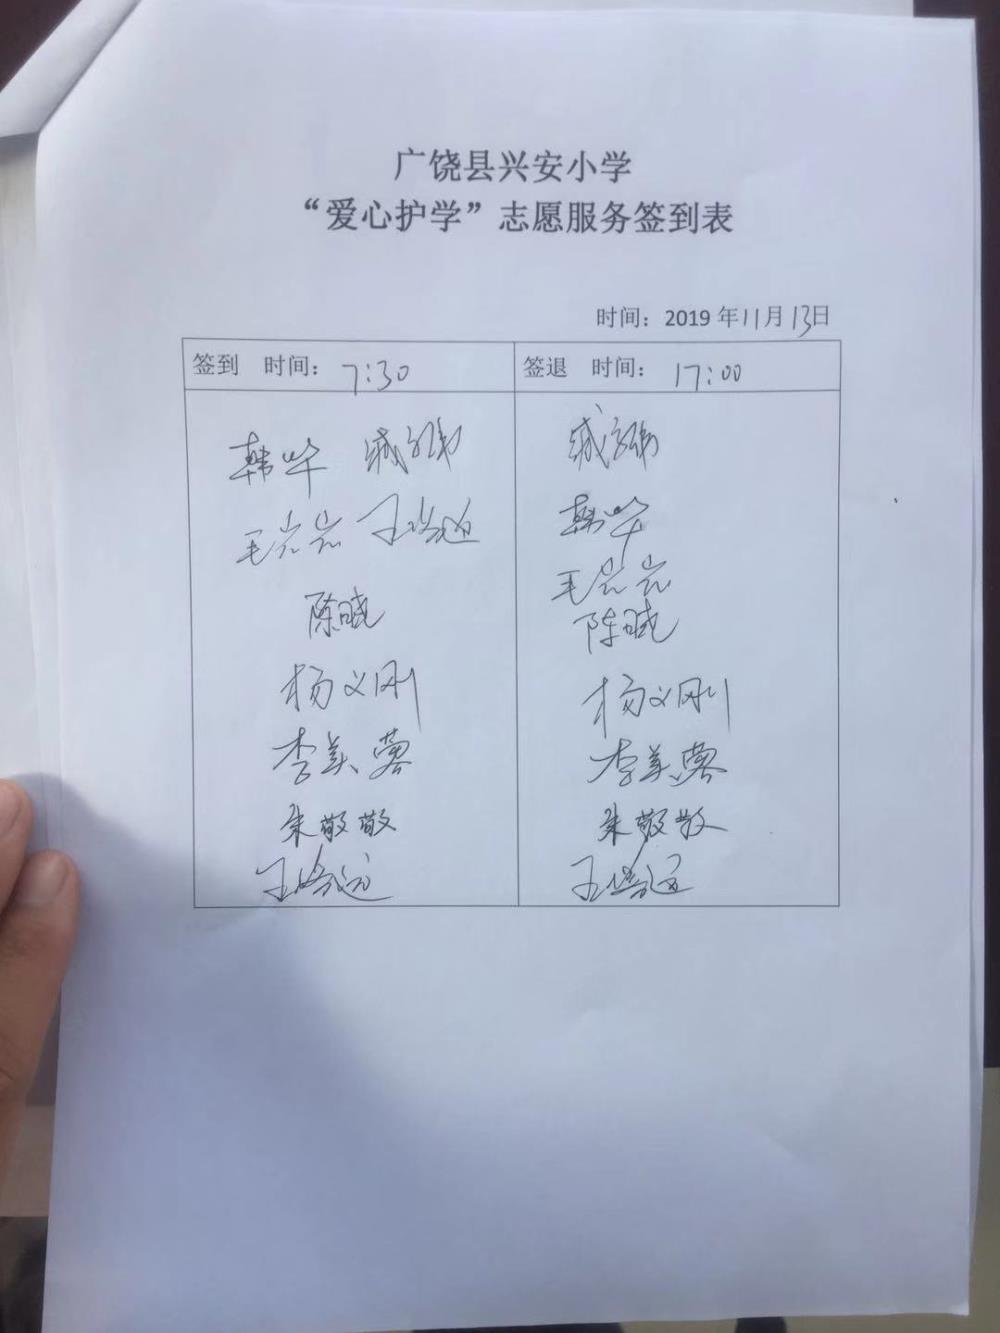 广饶县兴安小学
“爱心护学”志愿服务签到表
时间：2019 年11月13日
签到 时间：7:30
签退 时间：17:00
韩华
毛岩岩 王
陈晓
杨义刚
李美蓉
朱敬敬
王
韩华
毛岩岩
陈晓
杨义刚
李美蓉
朱敬敬
王